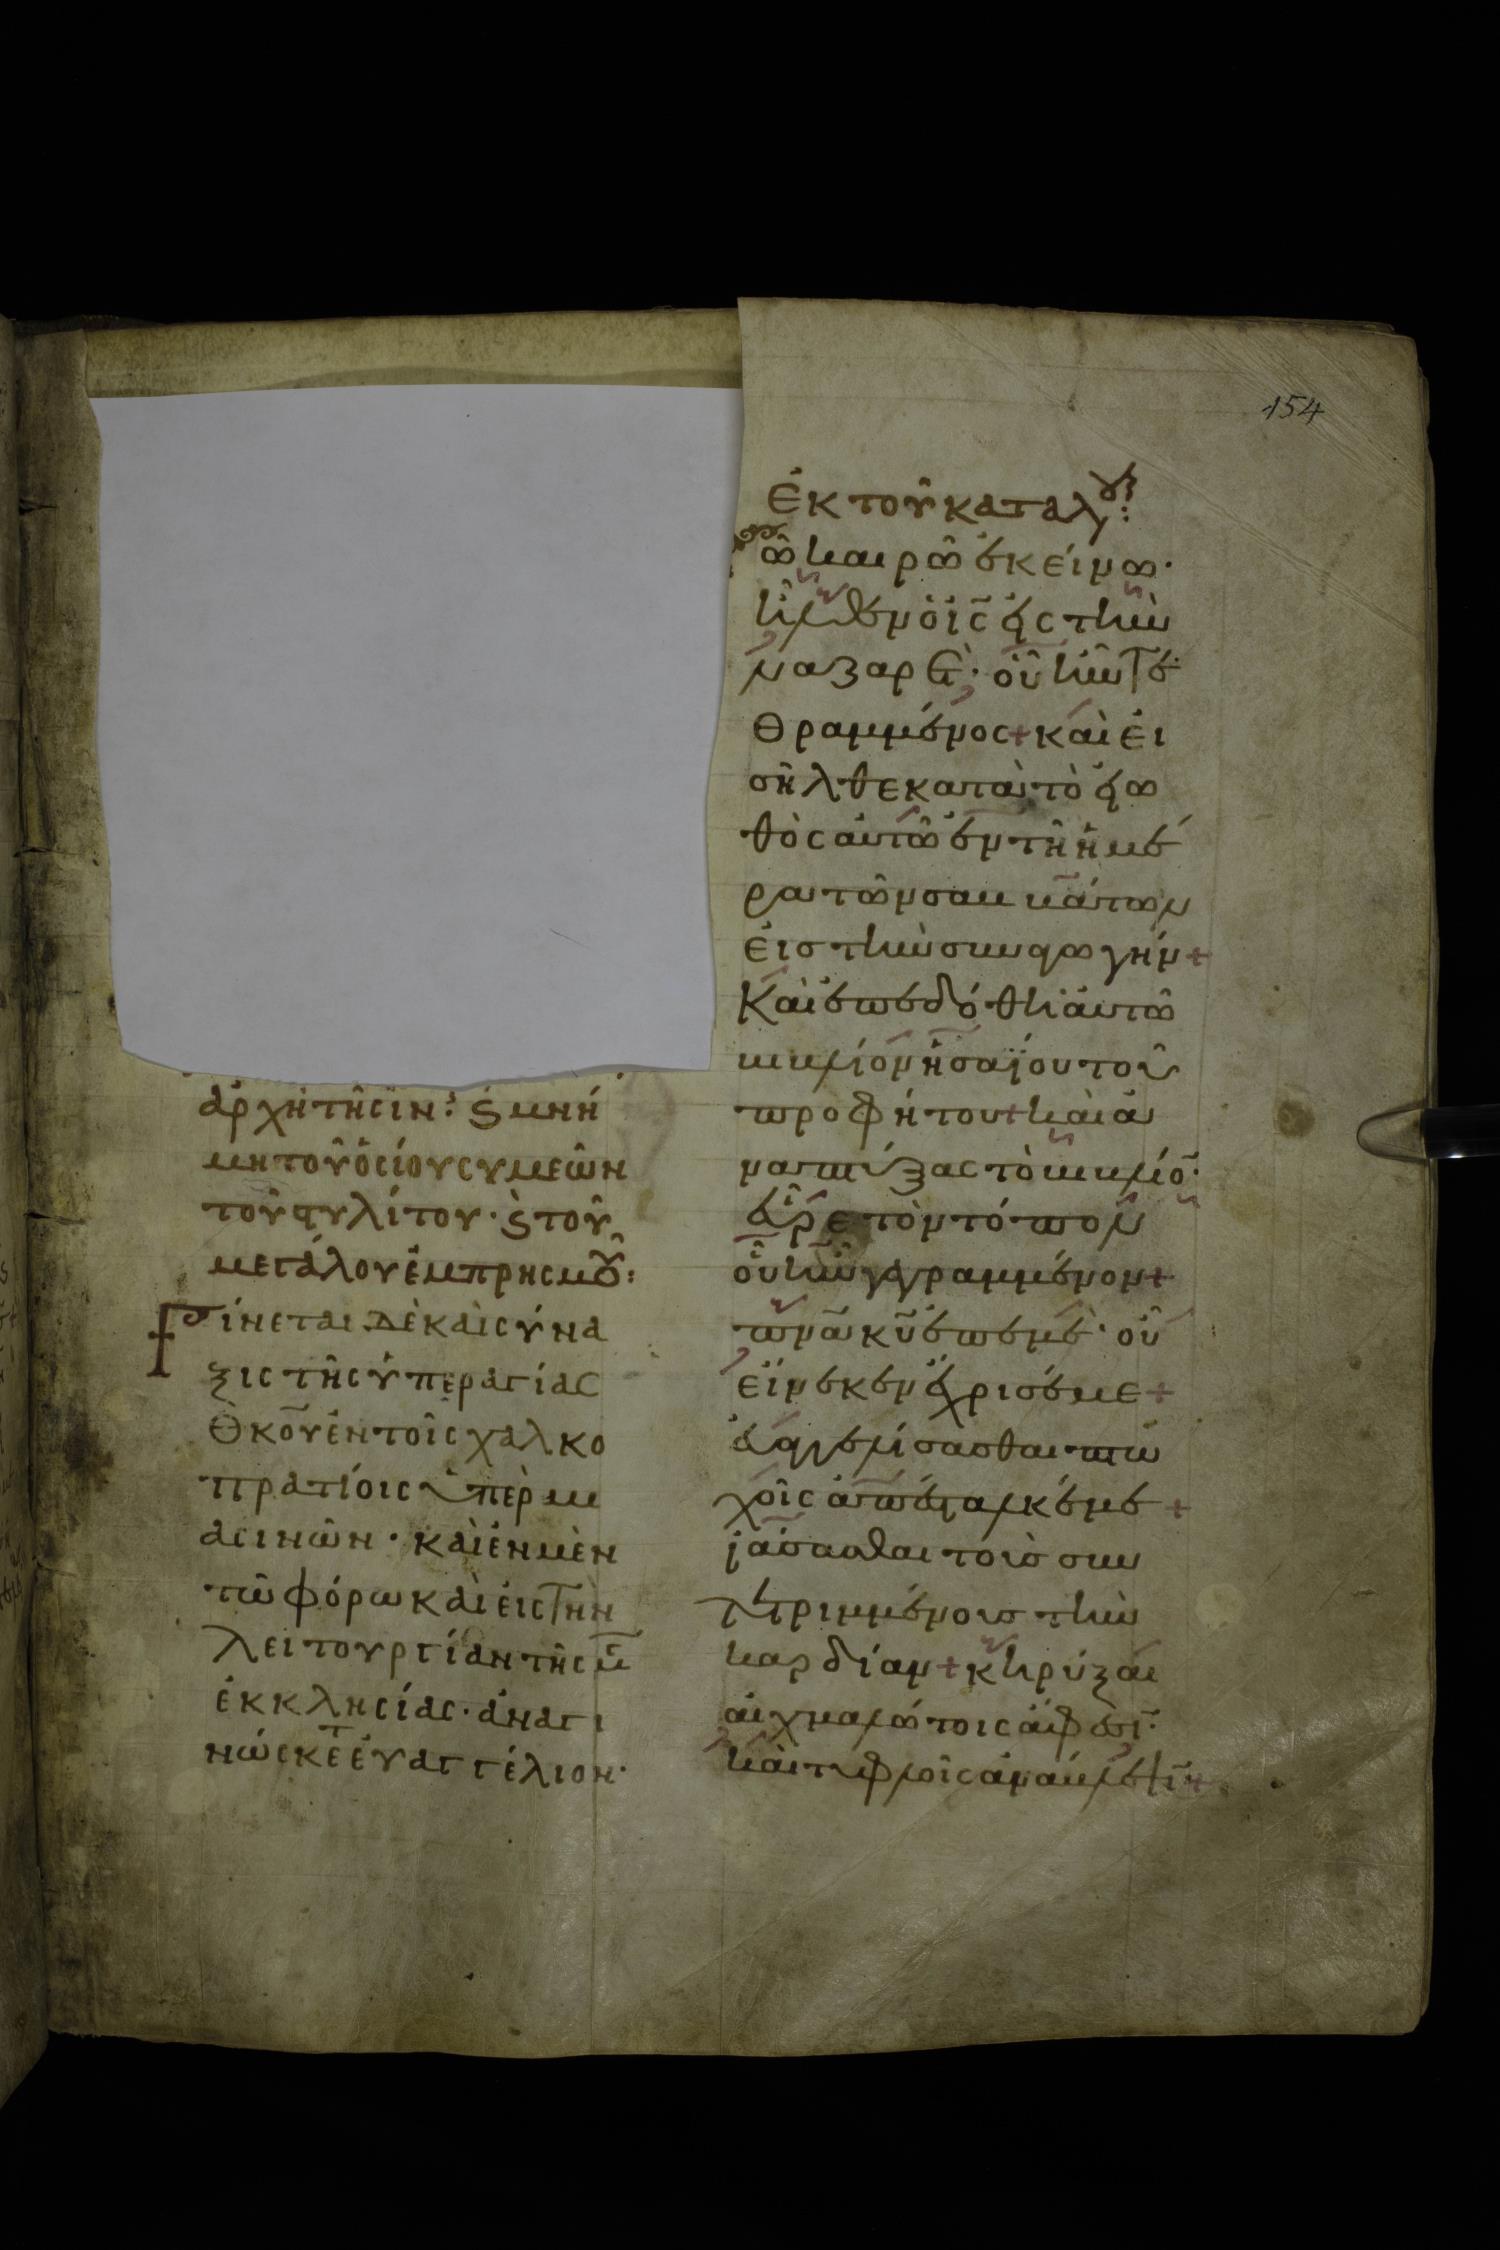 ἀρχὴ τῆς ἰν: ϛ μνή
μη τοῦ ὁσίου συμεῶν
τοῦ στυλίτου· ϛ τοῦ
μεγάλου ἐμπρησμοῦ:
Γίνεται δὲ καὶ σύνα
ξις τῆς ὑπεραγίας
Θκου ἐν τοῖς χαλκο
πρατίοις ὑπὲρ μ
ασινῶν· καὶ ἐν μὲν
τῶ φόρω καὶ εἰς τὴν
λειτουργίαν τῆς μ
ἐκκλησίας· ἀναγι
νώσκετ εὐαγγέλιον·
154
Ἐκ τοῦ κατα λουκ:
Τῶ καιρῶ ἐκείνω·
ἦλθεν ὁ ις εις τὴν
ναζαρετ· οὗ ἦν τε
θραμμένος + καὶ εἰ
σῆλθε κατὰ τὸ εἰω
θὸς αὐτῶ ἐν τῆ ἡμέ
ρα τῶν σαββάτων
εἰς τὴν συναγωγήν +
Καὶ ἐπεδόθη αὐτῶ
βιβλίον ἡσαΐου τοῦ
προφήτου + καὶ ἀ
ναπτύξας τὸ βιβλίον·
εὗρε τὸν τόπον
οὗ ἦν γεγραμμένον +
πνα κυ ἐπ ἐμέ· οὗ
εἵνεκεν ἔχρισέ με +
εὐαγγελίσασθαι πτω
χοῖς ἀπέσταλκέ με +
ἰάσασθαι τοὺς συν
τετριμμένους τὴν
καρδίαν + κηρύξαι
αἰχμαλώτοις ἄφεσιν·
καὶ τυφλοῖς ἀνάβλεψιν +